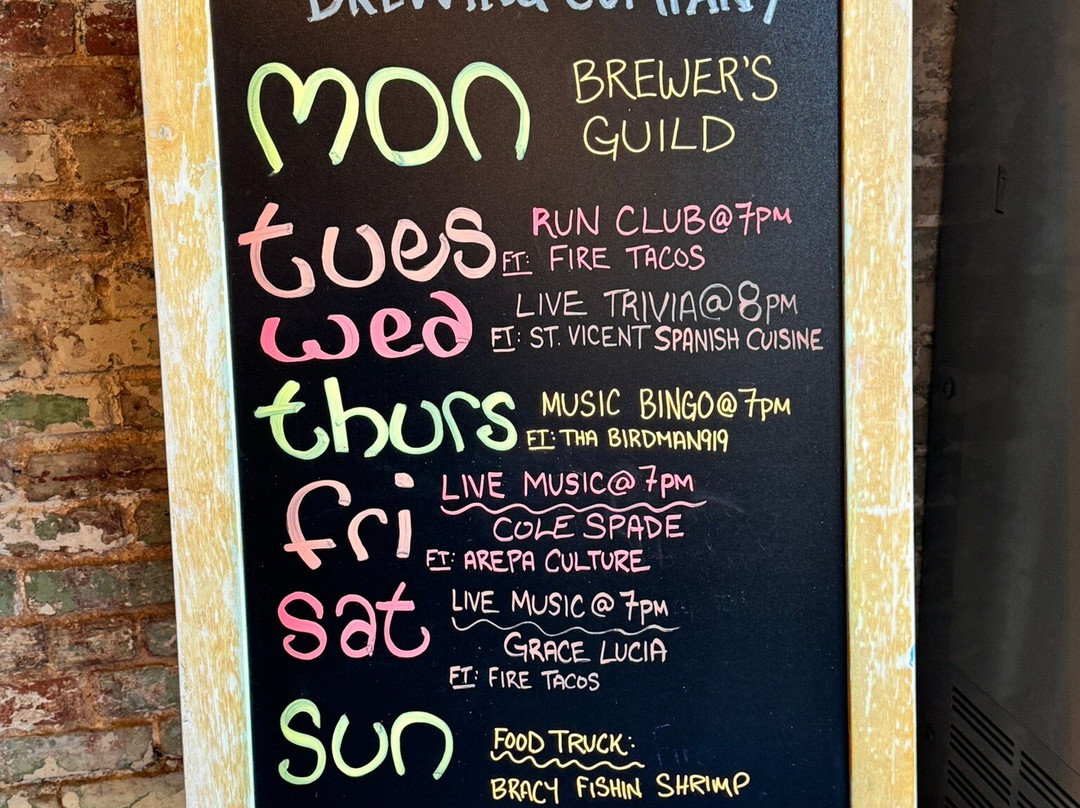 BREWING COMPANY
mon BREWER'S
GUILD
tues RUN CLUB@7PM
FT: FIRE TACOS
wed LIVE TRIVIA@8PM
FT: ST. VICENT SPANISH CUISINE
thurs MUSIC BINGO@7PM
FT: THA BIRDMAN919
fri LIVE MUSIC@7PM
COLE SPADE
FT: AREPA CULTURE
sat LIVE MUSIC@7PM
GRACE LUCIA
FT: FIRE TACOS
sun FOOD TRUCK:
BRACY FISHIN SHRIMP